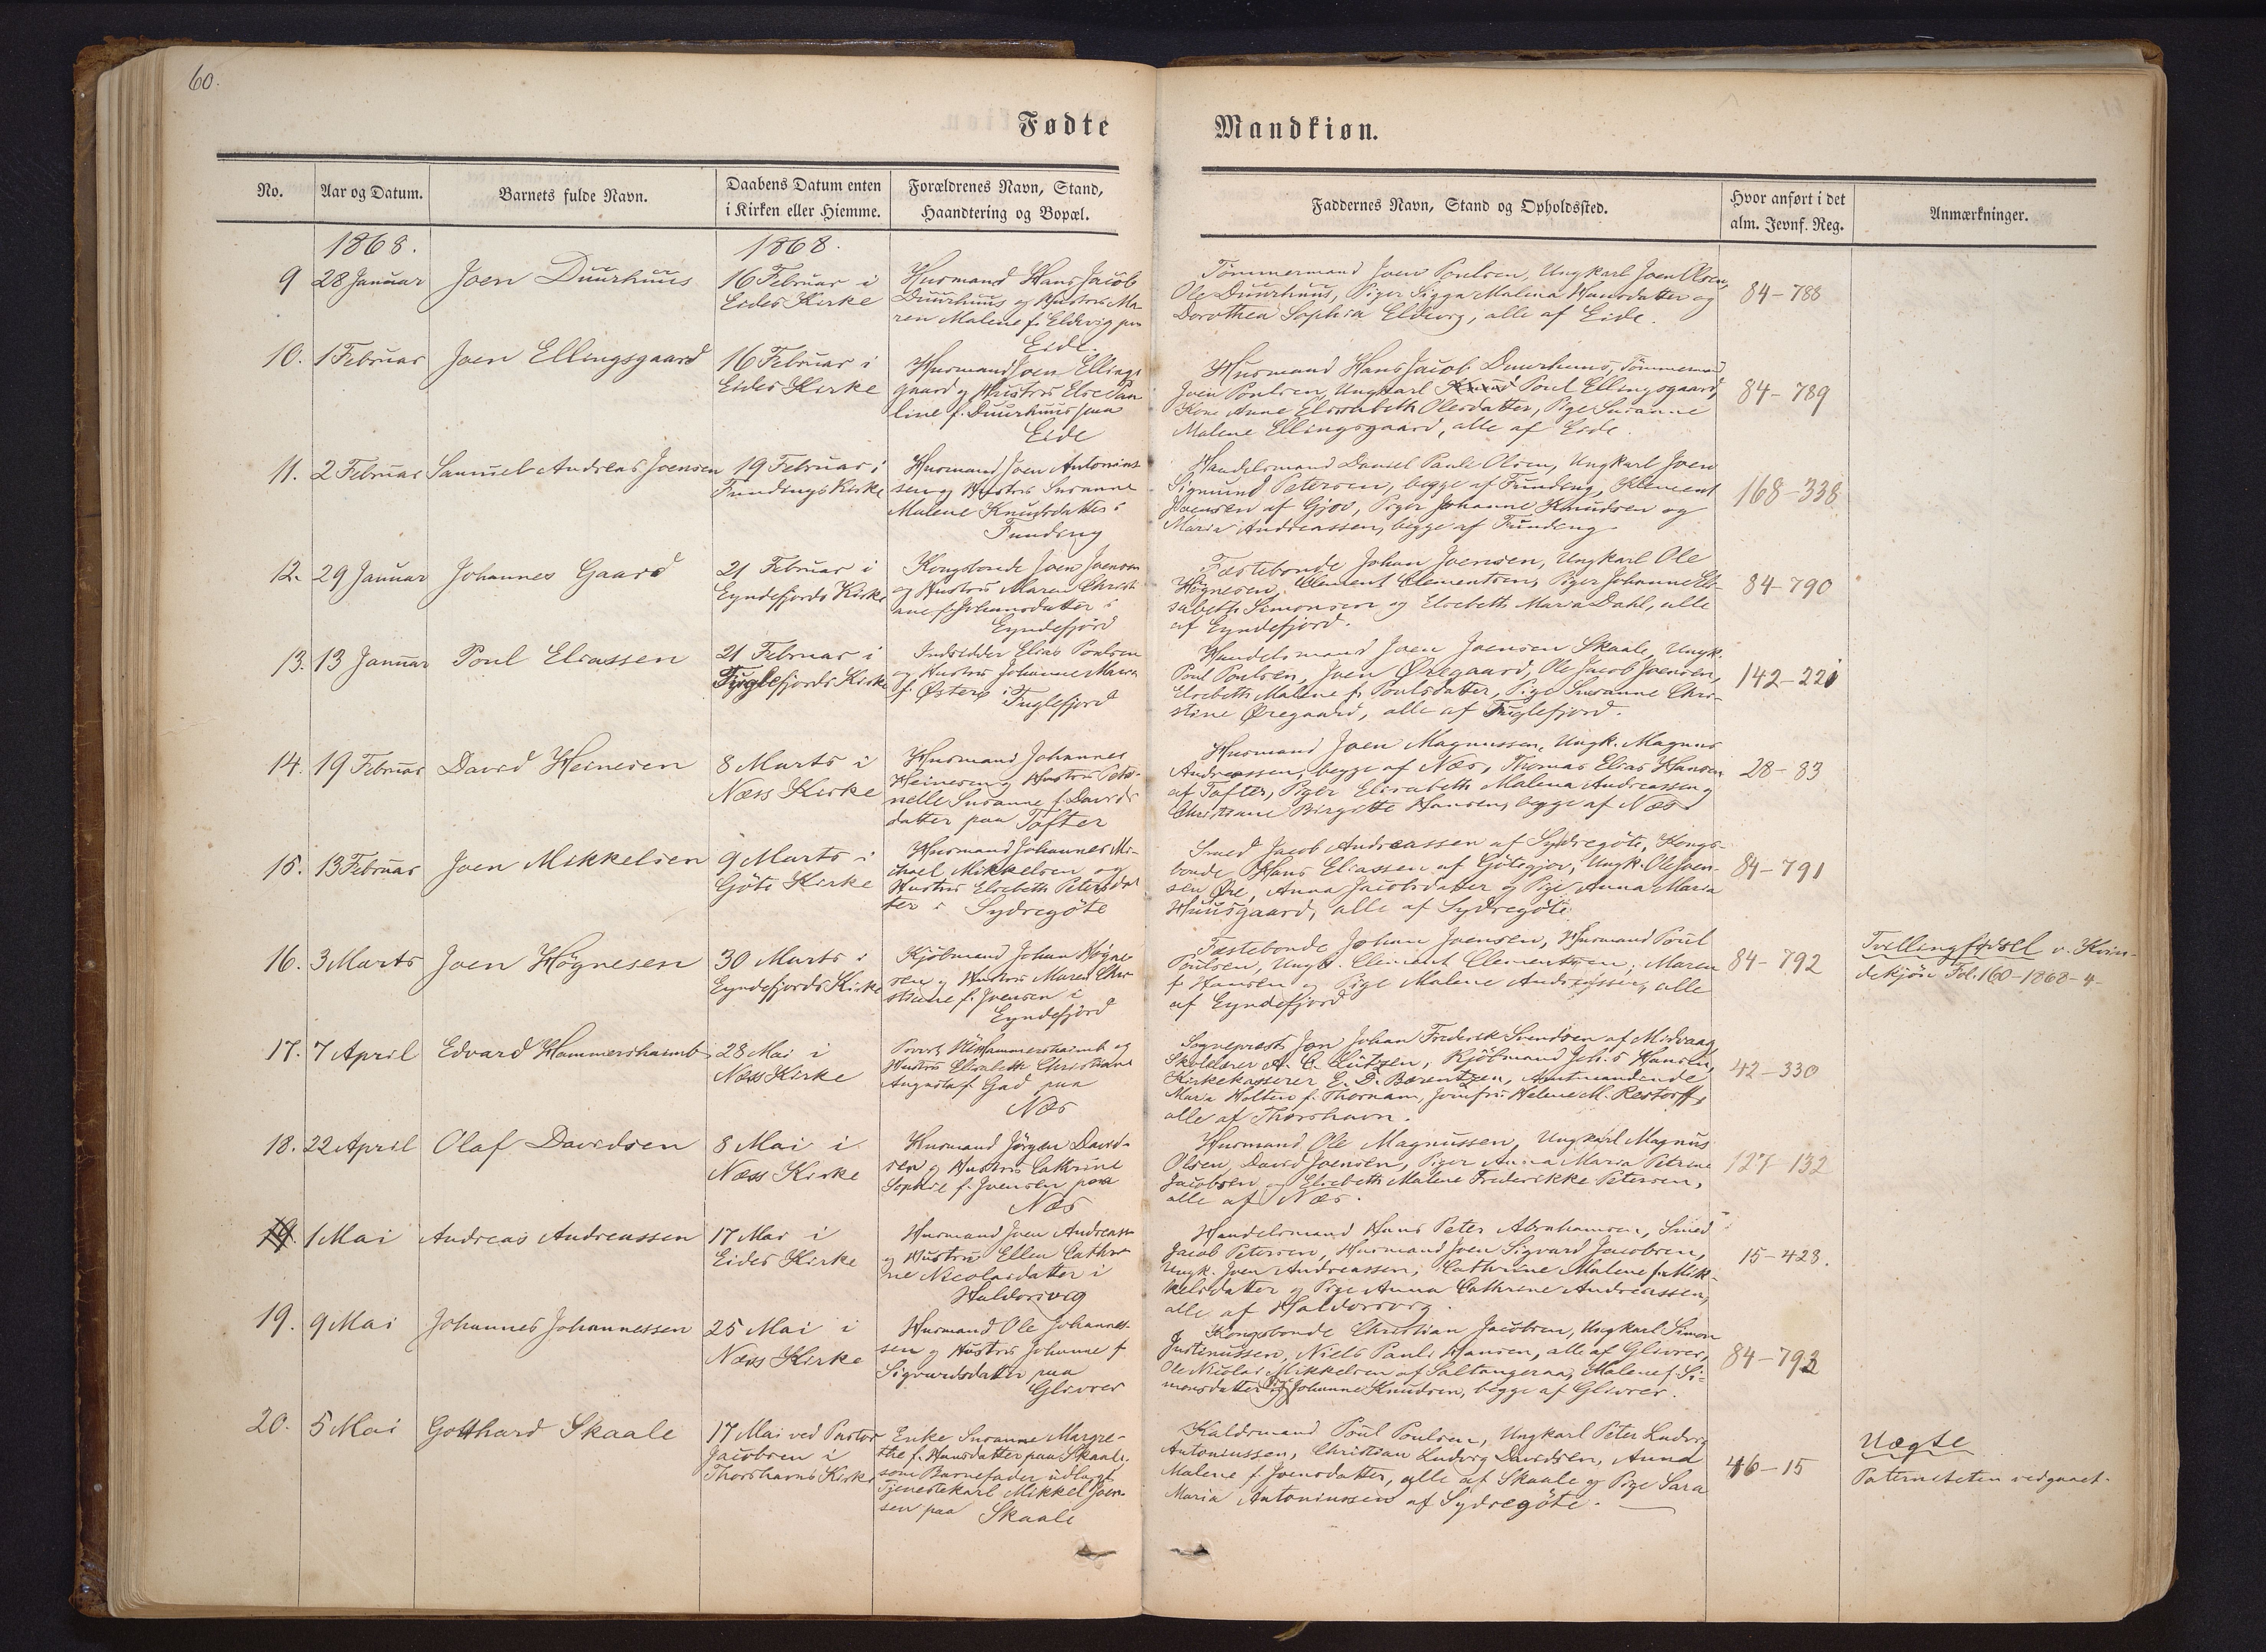 60.
Fødte
Mandkiøn.
No.
Aar og Datum.
Barnets fulde Navn.
Daabens Datum enten
i Kirken eller Hiemme.
Forældrenes Navn, Stand,
Haandtering og Bopæl.
Faddernes Navn, Stand og Opholdssted.
Hvor anført i det
alm. Jevnf. Reg.
Anmærkninger.
1868.
1868.
9
28 Januar
Joen Duurhuus
16 Februar i
Eides Kirke
Husmand Hans Jacob
Duurhuus og Hustru Ma
ren Malene f. Eldevig paa
Eide.
Tömmermand Joen Poulsen, Ungkarl Joen Olsen,
Ole Duurhuus, Piger Sigga Malena Hansdatter og
Dorothea Sophia Eldevig, alle af Eide.
84-788
10.
1 Februar
Joen Ellingsgaard
16 Februar i
Eides Kirke
Husmand Joen Ellings
gaard og Hustru Else Pau
line f. Duurhuus paa
Eide
Husmand Hans Jacob Duurhuus, Tömmermand
Joen Poulsen, Ungkarl Poul Ellingsgaard,
Kone Anne Elisabeth Olesdatter, Pige Susanne
Malene Ellingsgaard, alle af Eide.
84-789
11.
2 Februar
Samuel Andreas Joensen
19 Februar i
Fundings Kirke
Husmand Joen Antonius
sen og Hustru Susanne
Malene Knudsdatter i
Funding
Handelsmand Daniel Pauli Olsen, Ungkarl Joen
Sigmund Petersen, begge af Funding, Klement
Joensen af Gjov, Piger Johanne Knudsen og
Maria Andreassen, begge af Funding
168-338
12.
29 Januar
Johannes Gaard
21 Februar i
Eyndefjords Kirke
Kongsbonde Joen Joensen
og Hustru Maren Christi
ane f. Johansdatter i
Eyndefjord
Fæstebonde Johan Joensen, Ungkarl Ole
Högnesen, Clement Clementsen, Piger Johanne Eli-
sabeth Simonsen og Elsebeth Maria Dahl, alle
af Eyndefjord.
84-790
13.
13 Januar
Poul Eliassen
21 Februar i
Fuglefjords Kirke
Indsidder Elias Poulsen
og Hustru Johanne Maria
f. Østerø i
Fuglefjord
Handelsmand Joen Joensen Skaale, Ungk.
Poul Poulsen, Joen Øregaard, Ole Jacob Joensen,
Elsebeth Malene f. Poulsdatter, Pige Susanne Chri-
stine Øregaard, alle af Fuglefjord.
142-221
14.
19 Februar
David Heinesen
8 Marts i
Næss Kirke
Husmand Johannes
Heinesen og Hustru Petro-
nelle Susanne f. Davids
datter paa Tofter
Husmand Joen Magnussen, Ungk. Magnus
Andreassen, begge af Næs, Thomas Elias Hansen
af Tofter, Piger Elisabeth Malena Andreassen og
Christiane Birgitte Hansen, begge af Næs
28-83
15.
13 Februar
Joen Mikkelsen
9 Marts i
Göte Kirke
Husmand Johannes Mi-
chael Mikkelsen og
Hustru Elsebeth Petersdat
ter i Sydregöte
Smed Jacob Andreassen af Sydregöte, Kongs-
bonde Hans Eliassen af Götegjov, Ungk. Ole Joen-
sen Øre, Anna Jacobsdatter og Pige Anna Maria
Huusgaard, alle af Sydregöte
84-791
16.
3 Marts
Joen Högnesen
30 Marts i
Eyndefjords Kirke
Kjöbmand Johan Högne
sen og Hustru Maren Chri
stiane f. Joensen i
Eyndefjord
Fæstebonde Johan Joensen, Husmand Poul
Poulsen, Ungk. Clement Clementsen, Maren
f. Hansen og Pige Malene Andreassen, alle
af Eyndefjord
84-792
Tvillingfødsel v. Kvin-
dekjön Fol. 160-1868-4-
17.
7 April
Edvard Hammershaimb
28 Mai i
Næs Kirke
Provst Hammershaimb og
Hustru Elisabeth Christiane
Augusta f. Gad paa
Næs
Sognepræst Jon Johan Frederik Svendsen af Midvaag,
Skolelærer A. C. Lützen, Kjöbmand Hansen,
Kirkekasserer E. D. Bærentzen, Amtmandinde
Maria Holten f. Thornam, Jomfru Helene M. Restorff,
alle af Thorshavn.
42-330
18.
22 April
Olaf Davidsen
8 Mai i
Næss Kirke
Husmand Jörgen David-
sen og Hustru Cathrine
Sophie f. Joensen paa
Næs
Husmand Ole Magnussen, Ungkarl Magnus
Olsen, David Joensen, Piger Anna Maria Petrine
Jacobsen og Elsebeth Malene Frederikke Petersen,
alle af Næs.
127-132
19.
1 Mai
Andreas Andreassen
17 Mai i
Eides Kirke
Husmand Joen Andreass
og Hustru Ellen Cathri
ne Nicolaidatter i
Haldorsvig
Handelsmand Hans Peter Abrahamsen, Smed
Jacob Petersen, Husmand Joen Sigvard Jacobsen,
Ungk. Joen Andreassen, Cathrine Malene f. Mik-
kelsdatter og Pige Anna Cathrine Andreassen,
alle af Haldorsvig.
15-423.
19.
9 Mai
Johannes Johannessen
25 Mai i
Næss Kirke
Husmand Ole Johannes-
sen og Hustru Johanne f
Sigvardsdatter paa
Glivrer
Kongsbonde Christian Jacobsen, Ungkarl Simon
Justinussen, Niels Pauli Hansen, alle af Glivrer,
Ole Nicolai Mikkelsen af Saltangeraa, Malene f. Si-
monsdatter og Johanne Knudsen, begge af Glivrer.
84-793
20.
5 Mai
Gotthard Skaale
17 Mai ved Pastor
Jacobsen i
Thorshavns Kirke
Enke Susanne Margre-
the f. Hansdatter paa Skaale,
som Barnefader udlagt
Tjenestekarl Mikkel Joen-
sen paa Skaale
Kaldsmand Poul Poulsen, Ungkarl Peter Ludvig
Antoniussen, Christian Ludvig Davidsen, Anna
Malene f. Joensdatter, alle af Skaale og Pige Sara
Maria Antoniussen af Sydregöte.
46-15
Uægte
Paterniteten vedgaaet.